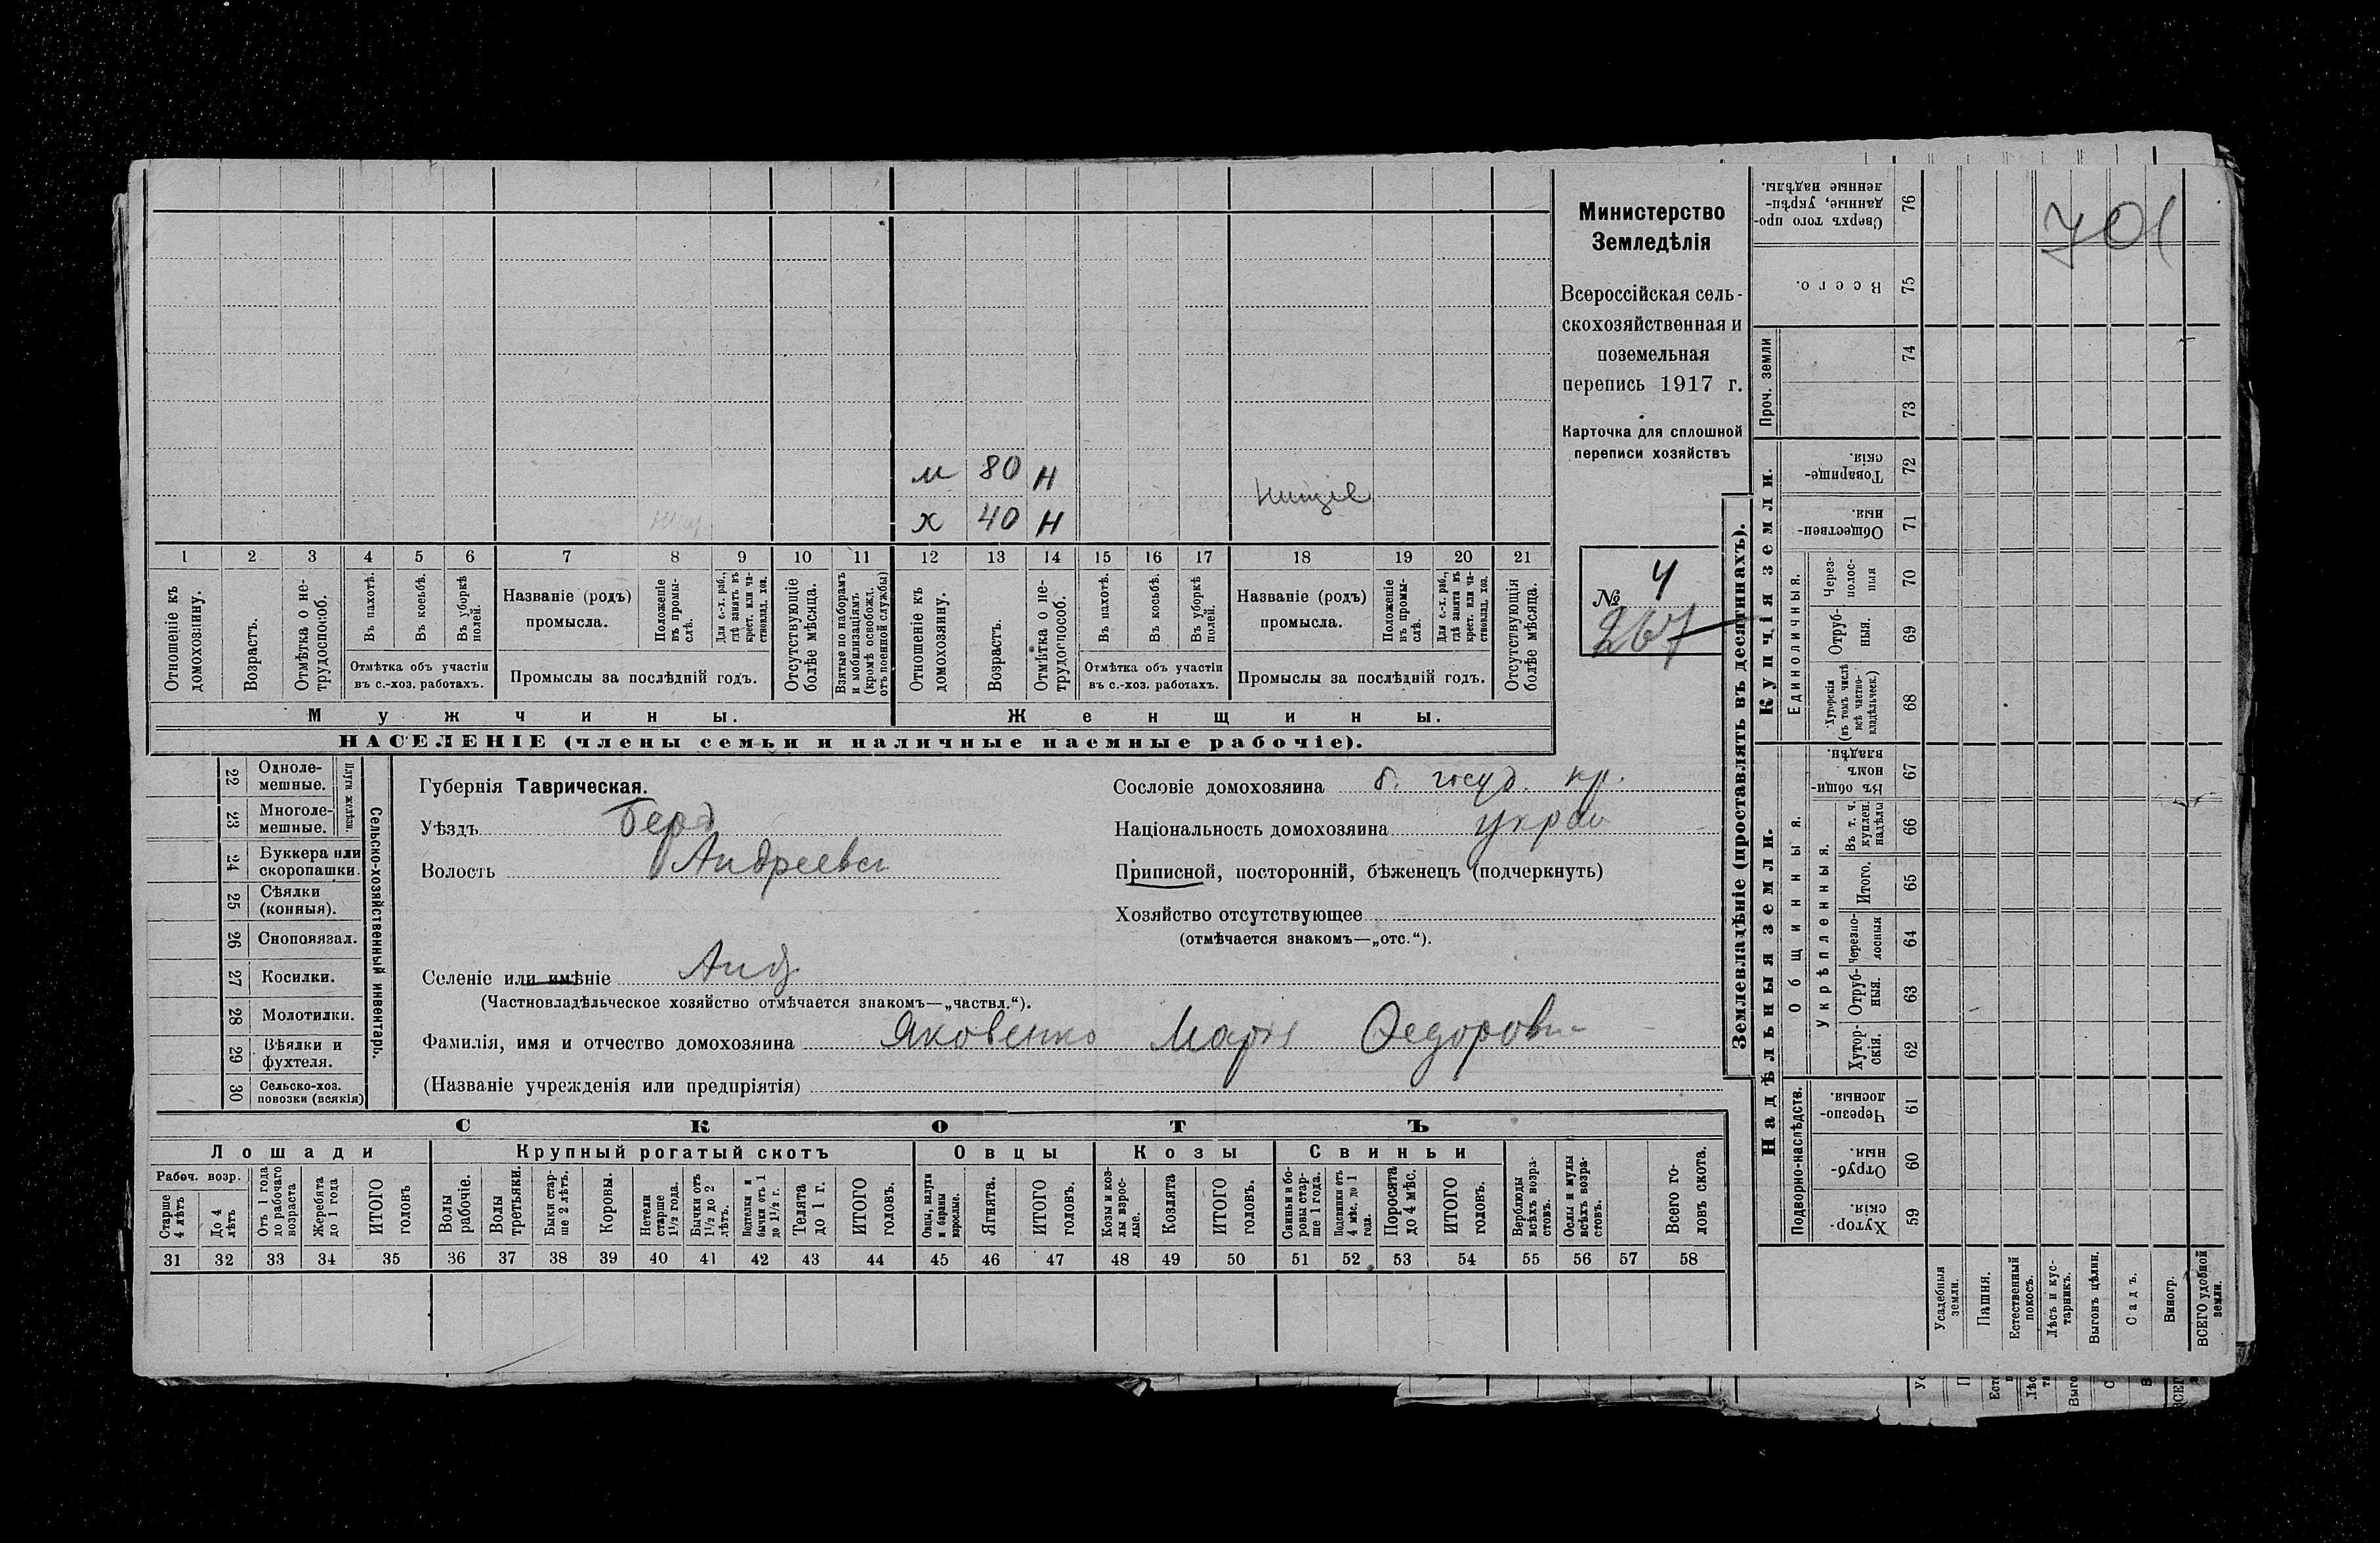 701
Министерство
Земледѣлія
Всероссійская сель-
скохозяйственная и
поземельная
перепись 1917 г.
Карточка для сплошной
переписи хозяйствъ
№ 4
267
м 80 н
х 40 н
1 2 3 4 5 6 7 8 9 10 11 12 13 14 15 16 17 18 19 20 21
Отношеніе къ домохозяину.
Возрастъ.
Отмѣтка о не-трудоспособ.
Въ пахотѣ.
Въ косьбѣ.
Въ уборкѣ полей.
Отмѣтка объ участіи въ с.-хоз. работахъ.
Названіе (родъ) промысла.
Положеніе въ промы-слѣ.
Для с.-х. раб., гдѣ занятъ въ крест. или ча-стновлад. хоз.
Промыслы за послѣдній годъ.
Отсутствующіе болѣе мѣсяца.
Взятые по наборамъ и мобилизаціямъ (кромѣ освобожд. отъ военной службы)
Отношеніе къ домохозяину.
Возрастъ.
Отмѣтка о не-трудоспособ.
Въ пахотѣ.
Въ косьбѣ.
Въ уборкѣ полей.
Отмѣтка объ участіи въ с.-хоз. работахъ.
Названіе (родъ) промысла.
Положеніе въ промы-слѣ.
Для с.-х. раб., гдѣ занята въ крест. или ча-стновлад. хоз.
Промыслы за послѣдній годъ.
Отсутствующія болѣе мѣсяца.
Мужчины. Женщины.
НАСЕЛЕНІЕ (члены семьи и наличные наемные рабочіе).
Сельско-хозяйственный инвентарь.
Плуги желѣзн.
22 Одноле-мешные.
23 Многоле-мешные.
24 Буккера или скоропашки.
25 Сѣялки (конныя).
26 Сноповязал.
27 Косилки.
28 Молотилки.
29 Вѣялки и фухтеля.
30 Сельско-хоз. повозки (всякія)
Губернія Таврическая.
Уѣздъ Берд
Волость Андреевс
Селеніе или имѣніе Анд
(Частновладѣльческое хозяйство отмѣчается знакомъ—„частвл.“).
Фамилія, имя и отчество домохозяина Яковенко Марія Федоровн
(Названіе учрежденія или предпріятія)
Сословіе домохозяина б. госуд. кр.
Національность домохозяина укра
Приписной, посторонній, бѣженецъ (подчеркнуть)
Хозяйство отсутствующее
(отмѣчается знакомъ—„отс.“).
СКОТЪ
Лошади Крупный рогатый скотъ Овцы Козы Свиньи
Рабоч. возр.
Старше 4 лѣтъ
До 4 лѣтъ
Отъ 1 года до рабочаго возраста
Жеребята до 1 года
ИТОГО головъ
Волы рабочіе.
Волы третьяки.
Быки стар-ше 2 лѣтъ.
Коровы.
Нетели старше 1½ года.
Бычки отъ 1½ до 2 лѣтъ.
Подтелки и бычки отъ 1 до 1½ г.
Телята до 1 г.
ИТОГО головъ.
Овцы, валухи и бараны взрослые.
Ягнята.
ИТОГО головъ.
Козы и коз-лы взрос-лые.
Козлята
ИТОГО головъ.
Свиньи и бо-ровы стар-ше 1 года.
Подсвинки отъ 4 мѣс. до 1 года.
Поросята до 4 мѣс.
ИТОГО головъ.
Верблюды всѣхъ возра-стовъ.
Ослы и мулы всѣхъ возра-стовъ.
Всего го-ловъ скота.
31 32 33 34 35 36 37 38 39 40 41 42 43 44 45 46 47 48 49 50 51 52 53 54 55 56 57 58
Землевладѣніе (проставлять въ десятинахъ).
Надѣльныя земли. Купчія земли. Проч. земли
Подворно-наслѣдств.
Общинныя.
Укрѣпленныя.
Единоличныя.
59 Хутор-скія.
60 Отруб-ныя.
61 Черезпо-лосныя.
62 Хутор-скія.
63 Отруб-ныя.
64 Черезпо-лосныя
65 Итого.
66 Въ т. ч. куплен. надѣлы
67 Въ общи-номъ владѣн.
68 Хуторскія (въ томъ числѣ всѣ частно-владѣльческ.)
69 Отруб-ныя.
70 Через-полос-ныя
71 Обществен-ныя.
72 Товарище-скія.
73
74
75 Всего.
76 Сверхъ того про-данные, укрѣп-ленные надѣлы.
Усадебныя земли.
Пашня.
Естественный покосъ.
Лѣсъ и кус-тарникъ.
Выгонъ цѣлин.
Садъ.
Виногр.
ВСЕГО удобной земли.